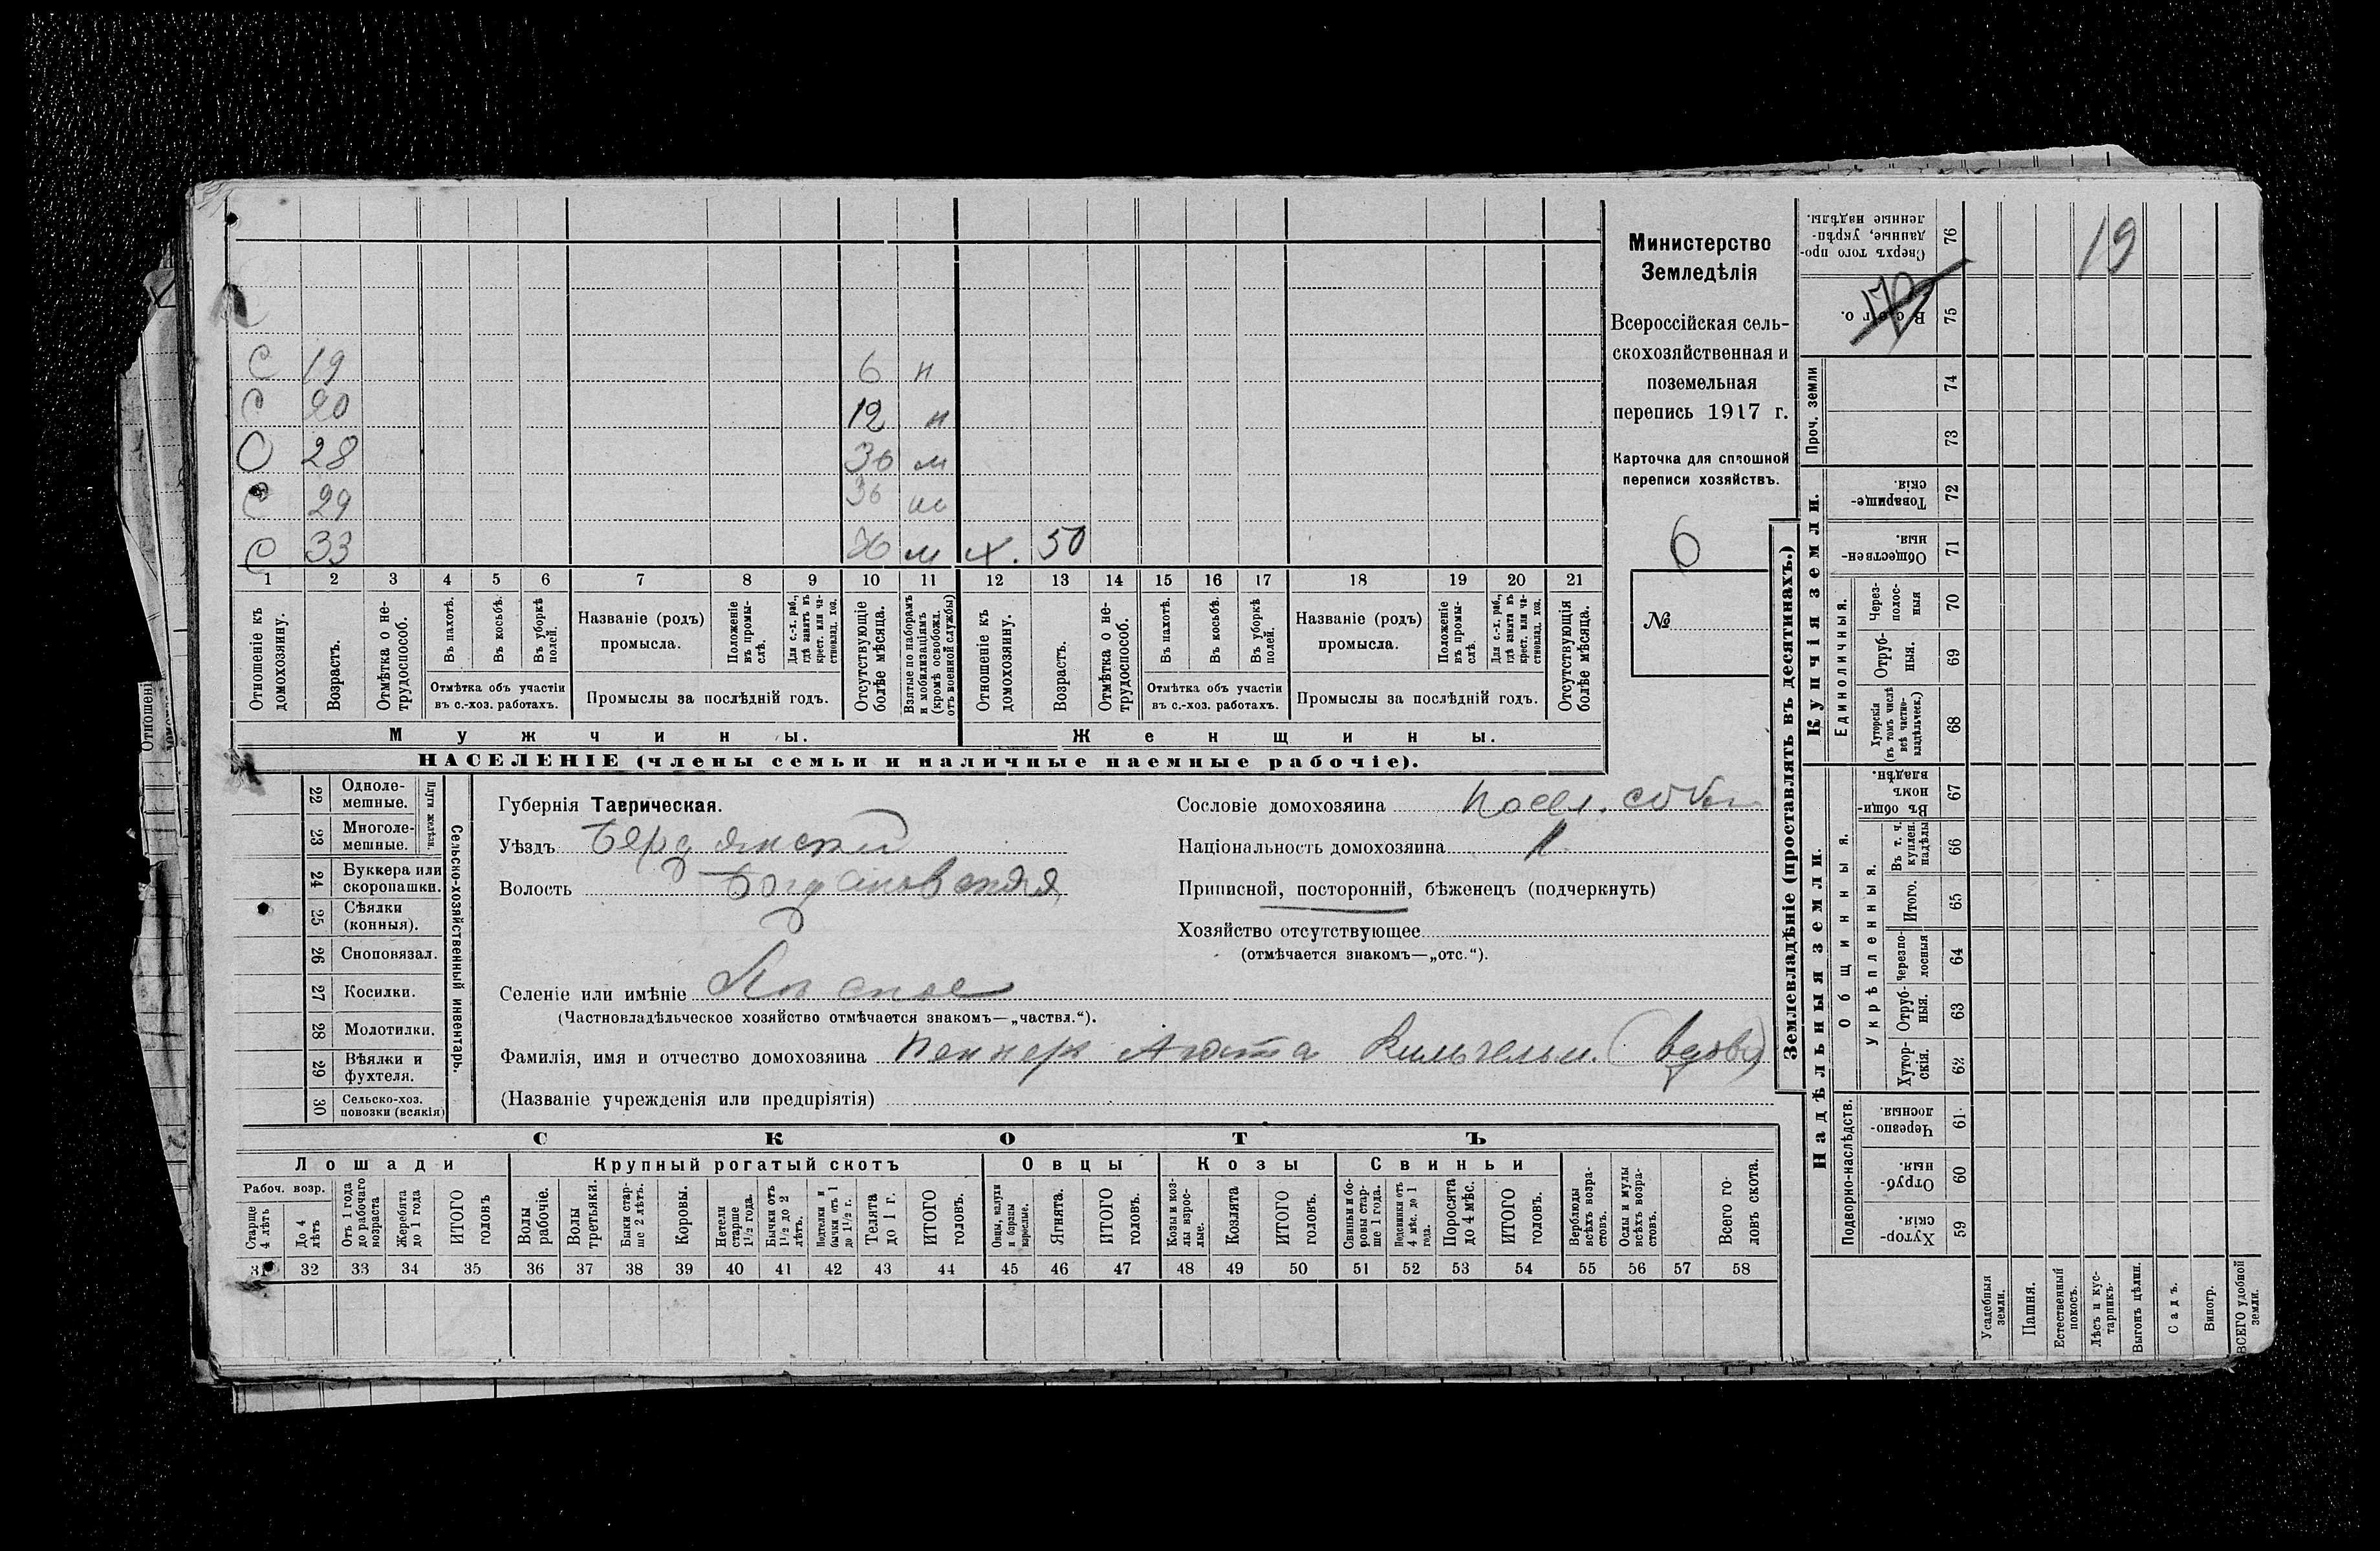 С 19 6 н
С 20 12 н
С 28 36 м
С 29 36 м
С 33 36 м х. 50
1 2 3 4 5 6 7 8 9 10 11 12 13 14 15 16 17 18 19 20 21
Отношеніе къ домохозяину.
Возрастъ.
Отмѣтка о не-трудоспособ.
Въ пахотѣ.
Въ косьбѣ.
Въ уборкѣ полей.
Отмѣтка объ участіи въ с.-хоз. работахъ.
Названіе (родъ) промысла.
Положеніе въ промы-слѣ.
Для с.-х. раб., гдѣ занятъ въ крест. или ча-стновлад. хоз.
Промыслы за послѣдній годъ.
Отсутствующіе болѣе мѣсяца.
Взятые по наборамъ и мобилизаціямъ (кромѣ освобожд. отъ военной службы)
Отношеніе къ домохозяину.
Возрастъ.
Отмѣтка о не-трудоспособ.
Въ пахотѣ.
Въ косьбѣ.
Въ уборкѣ полей.
Отмѣтка объ участіи въ с.-хоз. работахъ.
Названіе (родъ) промысла.
Положеніе въ промы-слѣ.
Для с.-х. раб., гдѣ занята въ крест. или ча-стновлад. хоз.
Промыслы за послѣдній годъ.
Отсутствующія болѣе мѣсяца.
Мужчины.
Женщины.
НАСЕЛЕНІЕ (члены семьи и наличные наемные рабочіе).
Министерство
Земледѣлія
Всероссійская сель-
скохозяйственная и
поземельная
перепись 1917 г.
Карточка для сплошной
переписи хозяйствъ.
6
№
22 Одноле-мешные.
23 Многоле-мешные.
Плуги желѣзн.
24 Буккера или скоропашки.
25 Сѣялки (конныя).
26 Сноповязал.
27 Косилки.
28 Молотилки.
29 Вѣялки и фухтеля.
30 Сельско-хоз. повозки (всякія)
Сельско-хозяйственный инвентарь.
Губернія Таврическая.
Уѣздъ Бердянскій
Волость Богдановская
Селеніе или имѣніе
(Частновладѣльческое хозяйство отмѣчается знакомъ—„частвл.“).
Фамилія, имя и отчество домохозяина Пеннеръ Агата Вильгельм. (вдова)
(Названіе учрежденія или предпріятія)
Сословіе домохозяина посел. собств.
Національность домохозяина
Приписной, посторонній, бѣженецъ (подчеркнуть)
Хозяйство отсутствующее
(отмѣчается знакомъ—„отс.“).
СКОТЪ
Лошади
Рабоч. возр.
Старше 4 лѣтъ
До 4 лѣтъ
Отъ 1 года до рабочаго возраста
Жеребята до 1 года
ИТОГО головъ
Крупный рогатый скотъ
Волы рабочіе.
Волы третьяки.
Быки стар-ше 2 лѣтъ.
Коровы.
Нетели старше 1 1/2 года.
Бычки отъ 1 1/2 до 2 лѣтъ.
Подтелки и бычки отъ 1 до 1 1/2 г.
Телята до 1 г.
ИТОГО головъ.
Овцы
Овцы, валухи и бараны взрослые.
Ягнята.
ИТОГО головъ.
Козы
Козы и коз-лы взрос-лые.
Козлята
ИТОГО головъ.
Свиньи
Свиньи и бо-ровы стар-ше 1 года.
Подсвинки отъ 4 мѣс. до 1 года.
Поросята до 4 мѣс.
ИТОГО головъ.
Верблюды всѣхъ возра-стовъ.
Ослы и мулы всѣхъ возра-стовъ.
Всего го-ловъ скота.
31 32 33 34 35 36 37 38 39 40 41 42 43 44 45 46 47 48 49 50 51 52 53 54 55 56 57 58
Землевладѣніе (проставлять въ десятинахъ.)
Купчія земли.
Надѣльныя земли.
19
Сверхъ того про-данные, укрѣп-ленные надѣлы. 76
Всего. 75
Проч. земли
74
73
Товарище-скія. 72
Обществен-ныя. 71
Единоличныя.
Через-полос-ныя 70
Отруб-ныя. 69
Хуторскія (въ томъ числѣ всѣ частно-владѣльческ.) 68
Общинныя.
Въ общин-номъ владѣн. 67
Укрѣпленныя.
Въ т. ч. куплен. надѣлы 66
Итого. 65
Черезпо-лосныя 64
Отруб-ныя. 63
Хутор-скія. 62
Подворно-наслѣдств.
Черезпо-лосныя. 61
Отруб-ныя. 60
Хутор-скія. 59
Усадебныя земли.
Пашня.
Естественный покосъ.
Лѣсъ и кус-тарникъ.
Выгонъ цѣлин.
Садъ.
Виногр.
ВСЕГО удобной земли.
Отношеніе